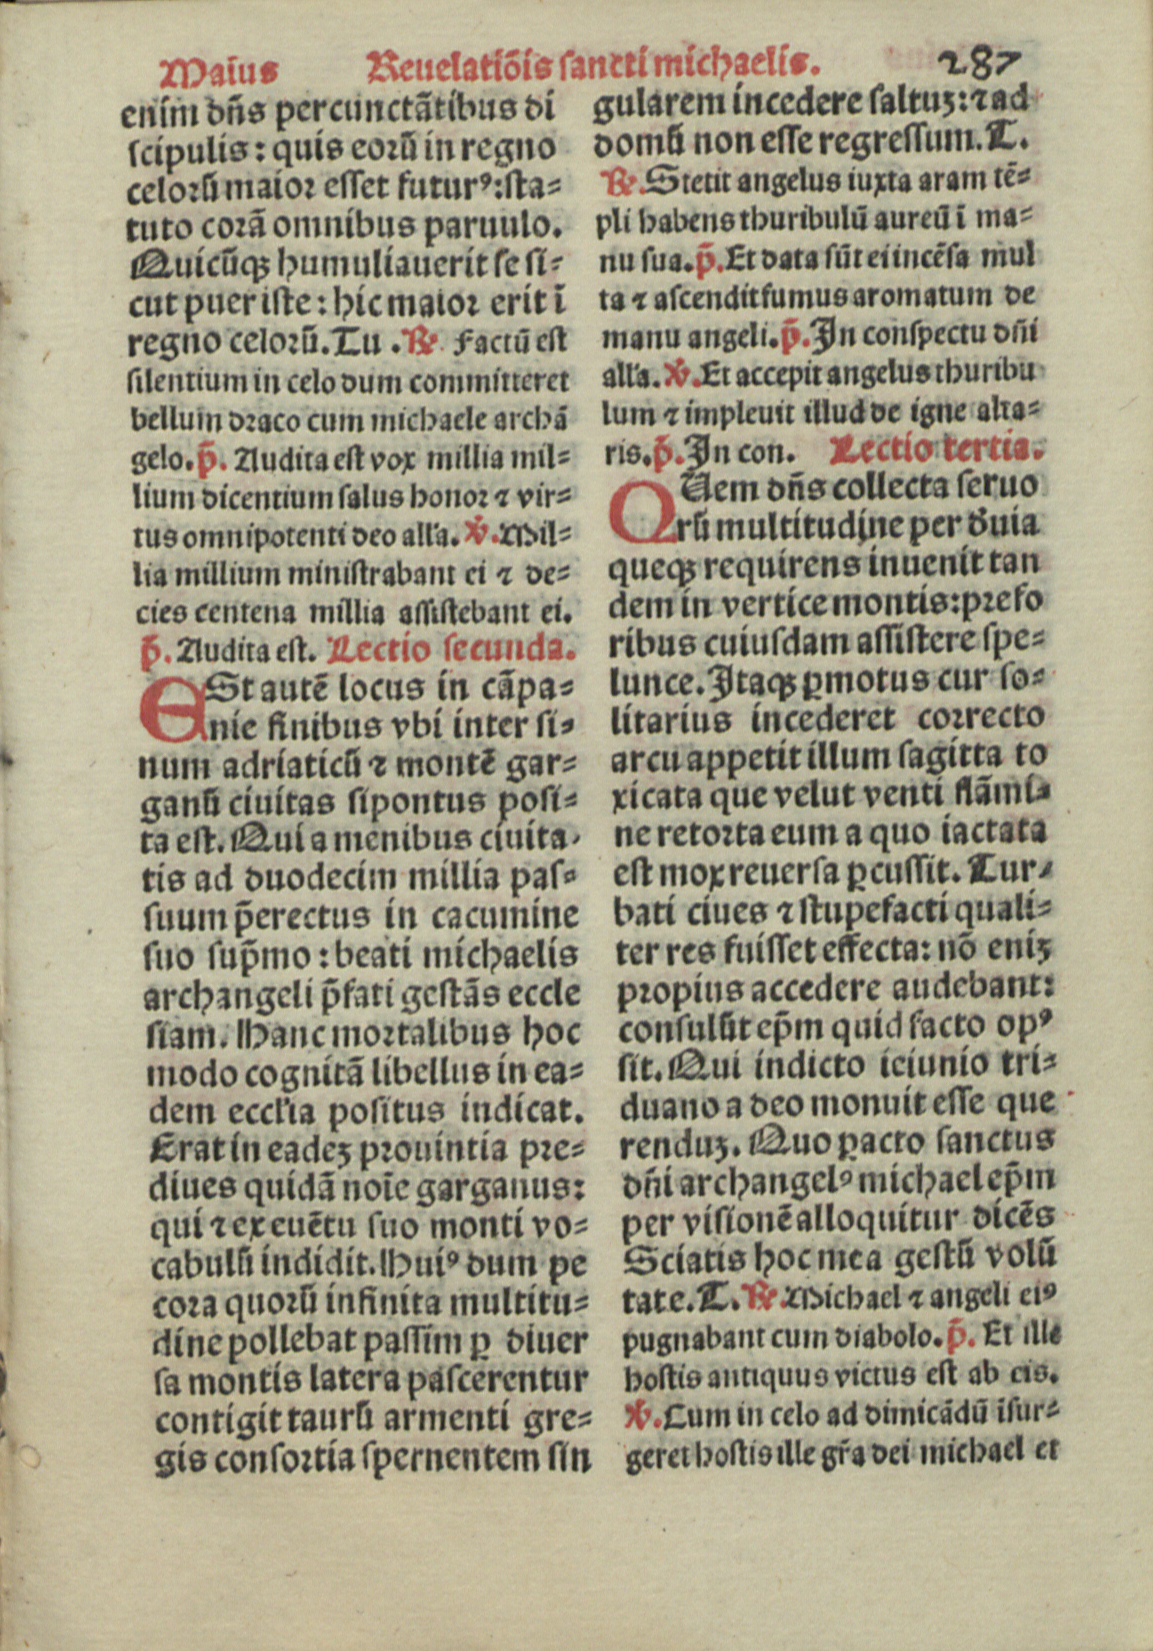 Maius Reuelatiõis sancti michaelis. 287
enim dñs percunctãtibus di
scipulis: quis eorũ in regno
celorũ maior esset futurꝰ: sta-
tuto corã omnibus paruulo.
Quicũqꝫ humuliauerit se si-
cut puer iste: hic maior erit ĩ
regno celorũ. Tu. ℟. Factũ est
silentium in celo dum committeret
bellum draco cum michaele archã
gelo. p̃. Audita est vox millia mil-
lium dicentium salus honor ⁊ vir-
tus omnipotenti deo alľa. ℣. Mil-
lia millium ministrabant ei ⁊ de-
cies centena millia assistebant ei.
p̃. Audita est. Lectio secunda.
ESt autẽ locus in cãpa-
nie finibus vbi inter si-
num adriaticũ ⁊ montẽ gar-
ganũ ciuitas sipontus posi-
ta est. Qui a menibus ciuita-
tis ad duodecim millia pas-
suum p̃erectus in cacumine
suo sup̃mo: beati michaelis
archangeli p̃fati gestãs eccle
siam. Hanc mortalibus hoc
modo cognitã libellus in ea-
dem eccľia positus indicat.
Erat in eadeꝫ prouintia pre-
diues quidã noĩe garganus:
qui ⁊ ex euẽtu suo monti vo-
cabulũ indidit. Huiꝰ dum pe
cora quorũ infinita multitu-
dine pollebat passim ꝑ diuer
sa montis latera pascerentur
contigit taurũ armenti gre-
gis consortia spernentem sin
gularem incedere saltuꝫ: ⁊ ad
domũ non esse regressum. T.
℟. Stetit angelus iuxta aram tẽ-
pli habens thuribulũ aureũ ĩ ma-
nu sua. p̃. Et data sũt ei incẽsa mul
ta ⁊ ascendit fumus aromatum de
manu angeli. p̃. In conspectu dñi
alľa. ℣. Et accepit angelus thuribu
lum ⁊ impleuit illud de igne alta-
ris. p̃. In con. Lectio tertia.
QUem dñs collecta seruo
rũ multitudine per d̾uia
queqꝫ requirens inuenit tan
dem in vertice montis: prefo
ribus cuiusdam assistere spe-
lunce. Itaqꝫ ꝑmotus cur so-
litarius incederet correcto
arcu appetit illum sagitta to
xicata que velut venti flãmi-
ne retorta eum a quo iactata
est mox reuersa ꝑcussit. Tur-
bati ciues ⁊ stupefacti quali-
ter res fuisset effecta: nõ eniꝫ
propius accedere audebant:
consulũt ep̃m quid facto opꝰ
sit. Qui indicto ieiunio tri-
duano a deo monuit esse que
renduꝫ. Quo ꝑacto sanctus
dñi archangelꝰ michael ep̃m
per visionẽ alloquitur dicẽs
Sciatis hoc mea gestũ volũ
tate. T. ℟. Michael ⁊ angeli eiꝰ
pugnabant cum diabolo. p̃. Et ille
hostis antiquus victus est ab eis.
℣. Cum in celo ad dimicãdũ ĩsur-
geret hostis ille gr̃a dei michael et